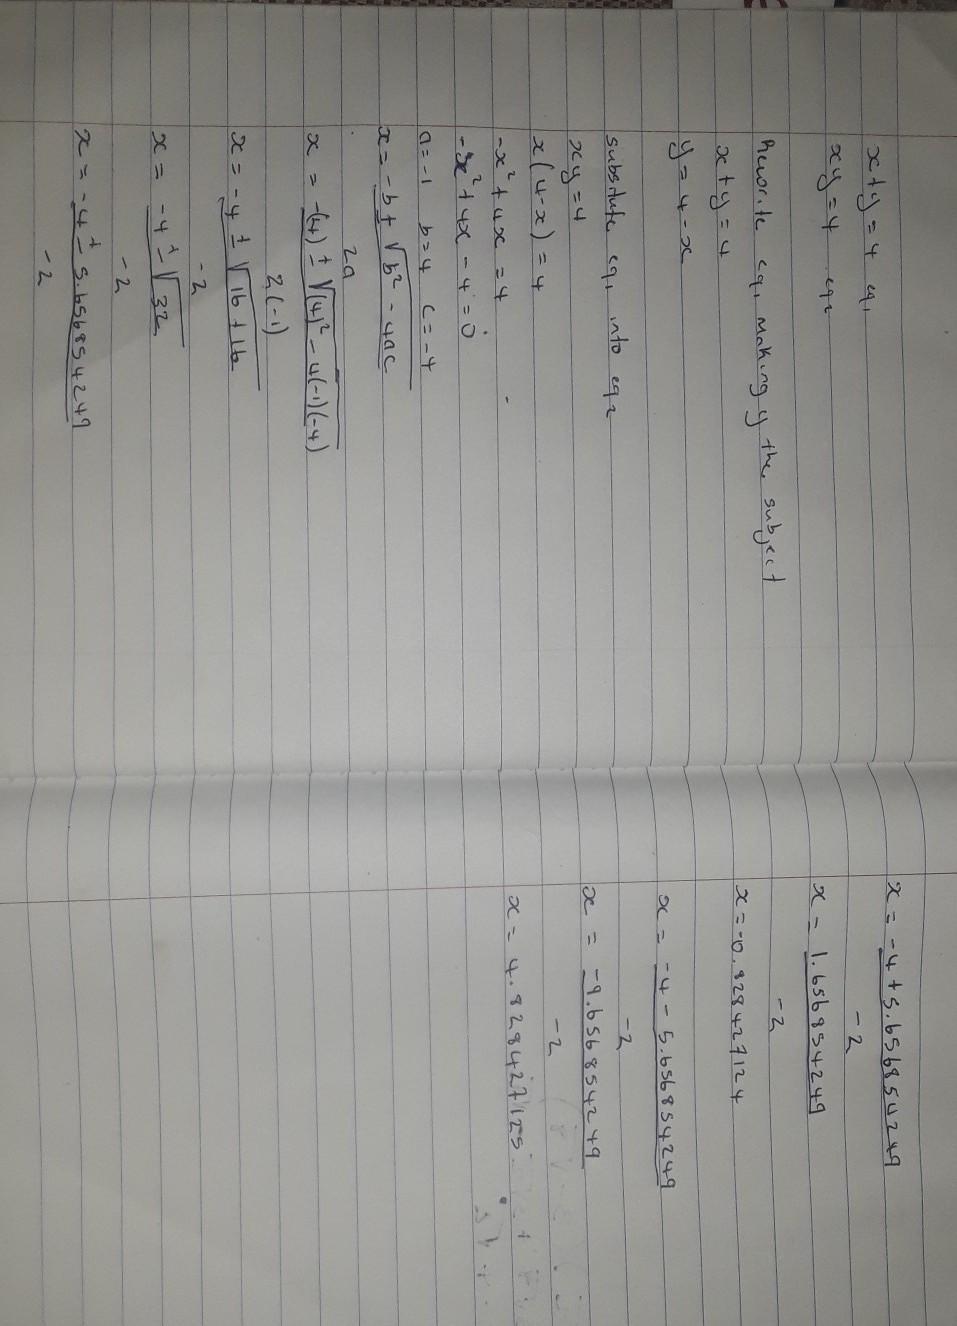 x + y = 4 eq1
xy = 4 eq2
Rewrite eq1 making y the subject
x + y = 4
y = 4 - x
substitute eq1 into eq2
xy = 4
x(4-x) = 4
-x² + 4x = 4
-x² + 4x - 4 = 0
a = -1 b = 4 c = -4
x = -b ± √b² - 4ac
2a
x = -(4) ± √(4)² - 4(-1)(-4)
2(-1)
x = -4 ± √16 + 16
-2
x = -4 ± √32
-2
x = -4 ± 5.656854249
-2
x = -4 + 5.656854249
-2
x = 1.656854249
-2
x = -0.828427124
x = -4 - 5.656854249
-2
x = -9.656854249
-2
x = 4.828427125